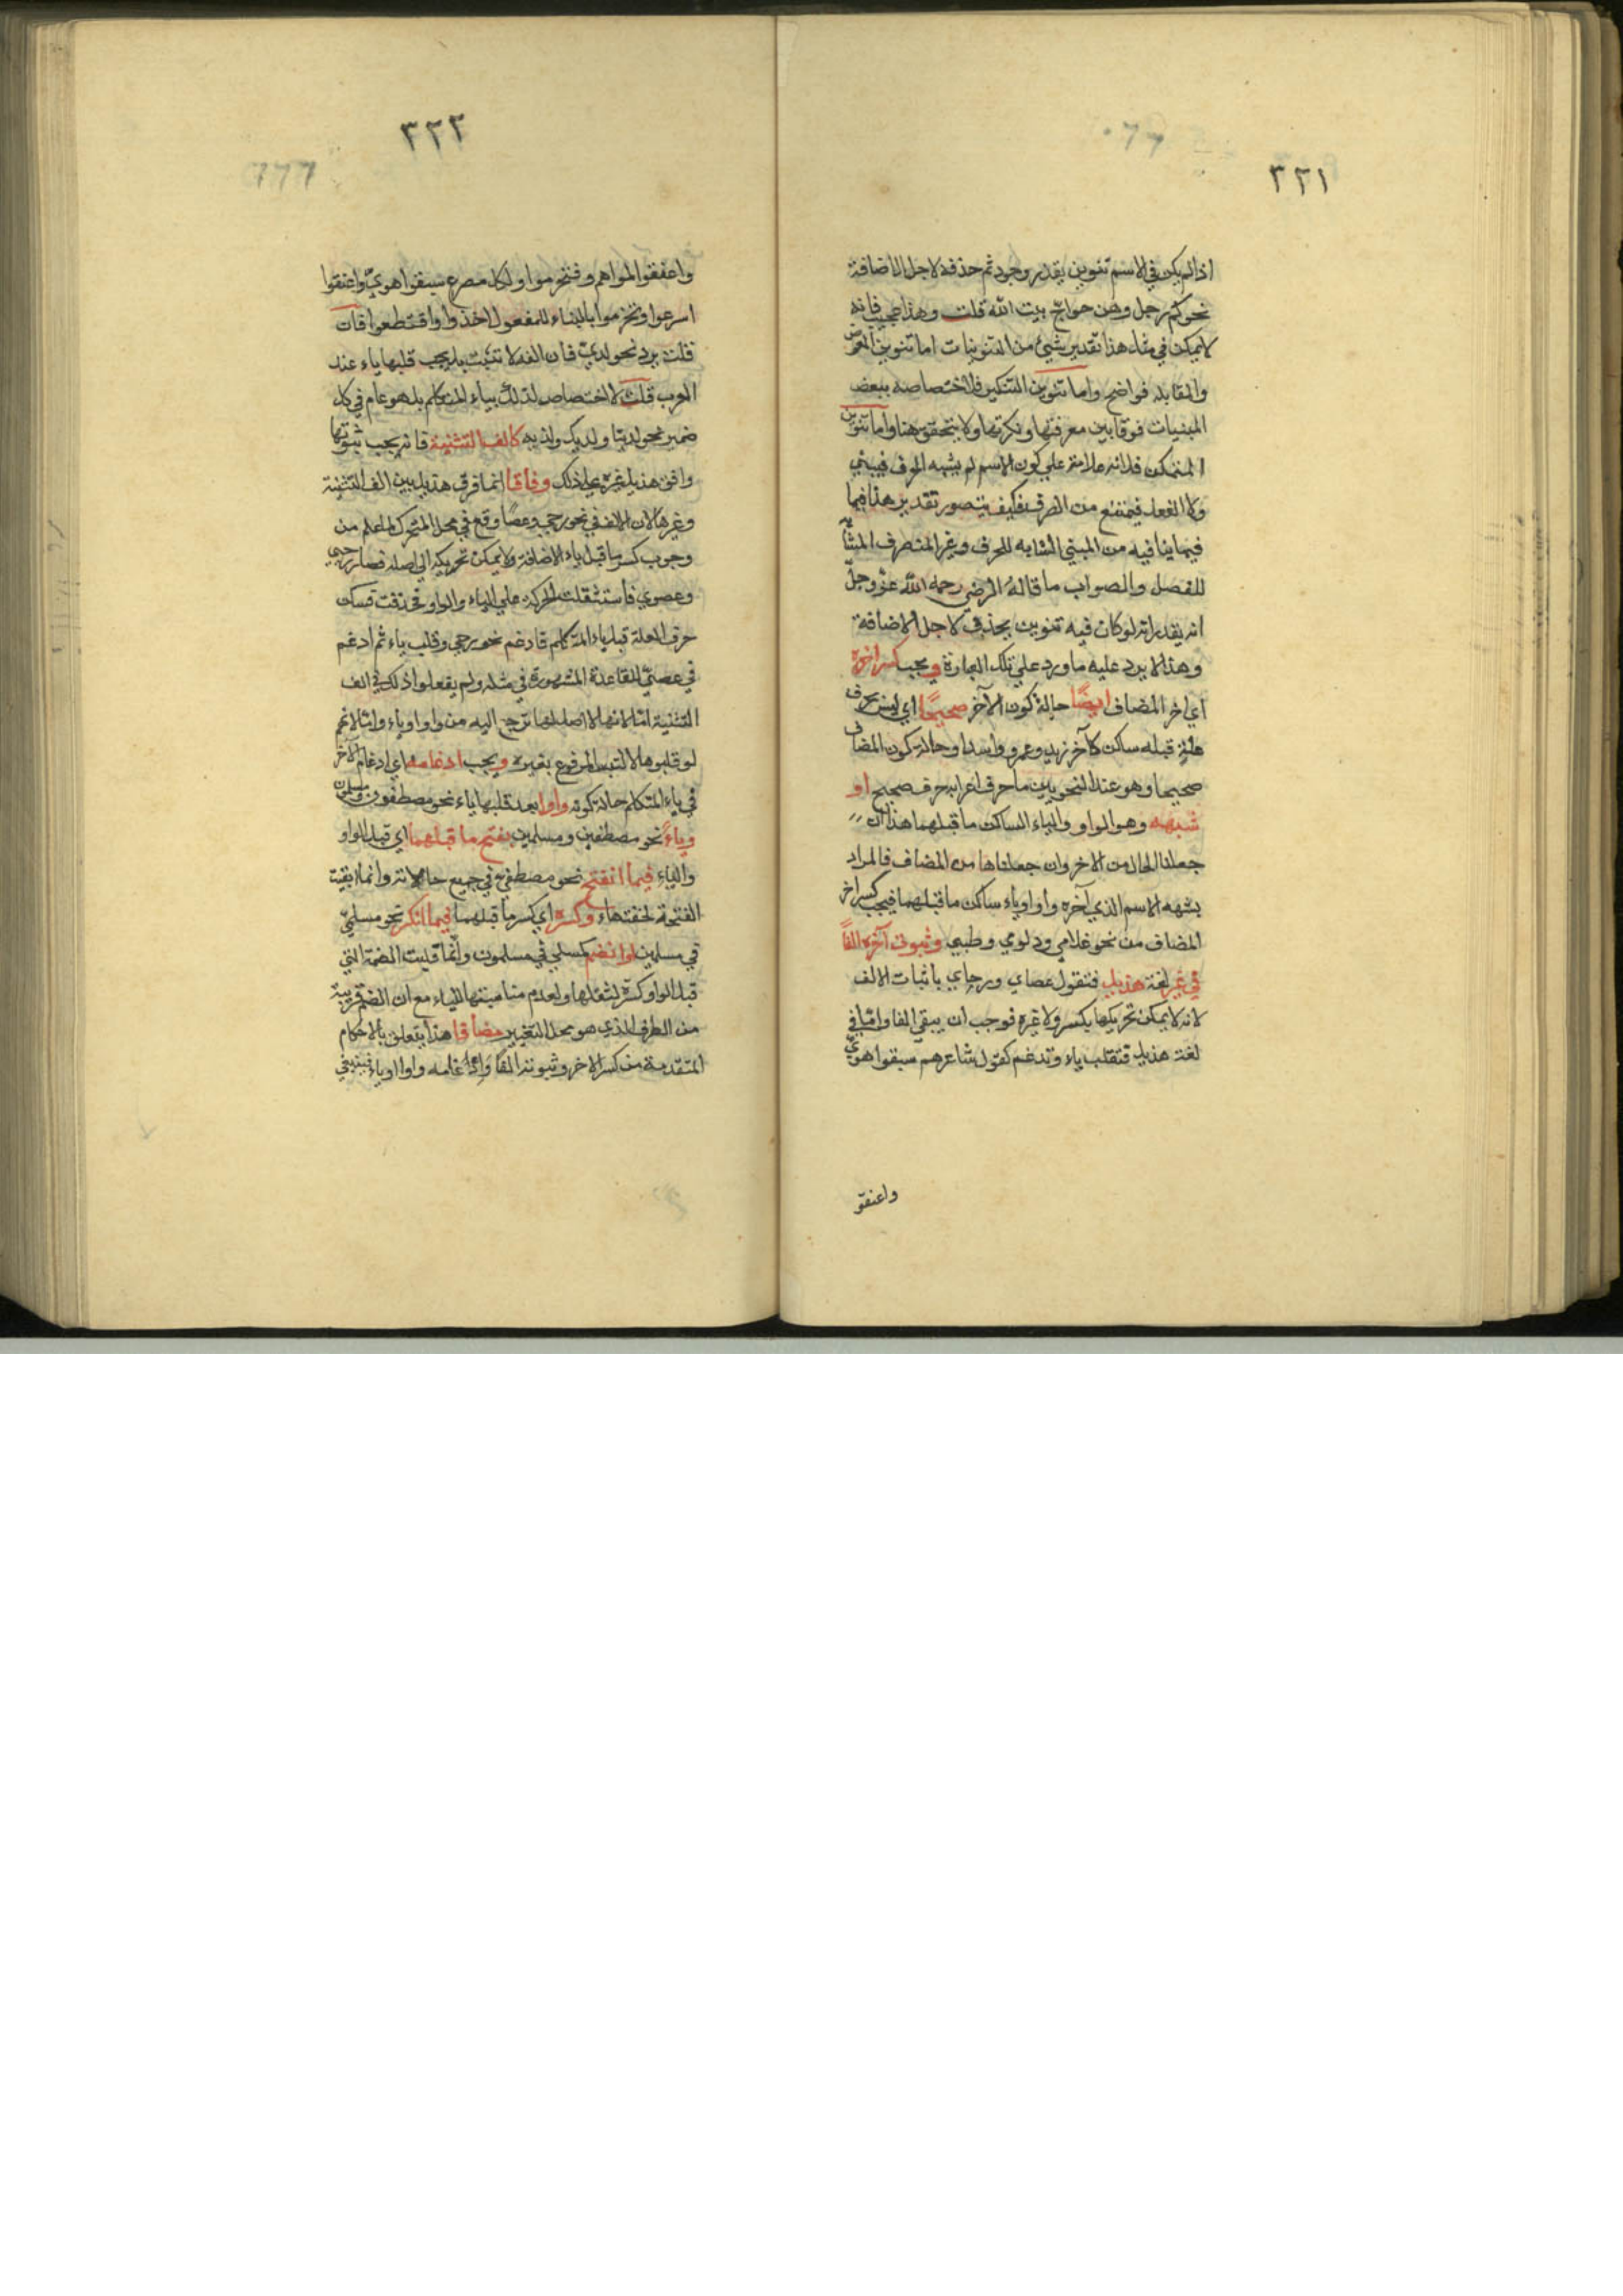 ٣٢١
اذا لم يكن في الاسم تنوين يقدر وجود ثم حذفه لاجل الاضافة
نحو كم رجل وهن حواج بيت الله قلت وهذا عجيب فانه
لا يمكن في مثل هذا تقدير شيئ من التنوينات اما تنوين العوض
والمقابلة فواضح واما تنوين التنكير فلاختصاصه ببعض
المبنيات فرقا بين معرفتها ونكرتها ولا يتحقق هنا واما تنوين
المتمكن فلانه علامة علي كون الاسم لم يشبه الحرف فيبني
ولا الفعل فيمتنع من الصرف فكيف يتصور تقدير هذا فيما
فيما ينافيه من المبني المشابه للحرف وغير المنصرف المشابه
للفصل والصواب ما قاله الرضي رحمه الله عز وجل
انه يقدر انه لو كان فيه تنوين يحذف لاجل الاضافة
وهذا لا يرد عليه ما ورد علي تلك العبارة ويجب كسر اخره
اي اخر المضاف ايضًا حالة كون الآخر صحيحًا اي ليس بحرف
علة قبله ساكن كآخر زيد وعمرو واسد او حالة كون المضاف
صحيحا وهو عند النحويين ما حرف اعرابه حرف صحيح او
شبهه وهو الواو والياء الساكن ما قبلهما هذا ان
جعلنا الحال من الاخر وان جعلناها من المضاف فالمراد
بشبهه الاسم الذي آخره واو او ياء ساكن ما قبلهما فيجب كسر اخر
المضاف من نحو غلامي ودلوي وظبي وثبوت آخره الفًا
في غير لغة هذيل فتقول عصاي ورجاي باثبات الالف
لانه لا يمكن تحريكها بكسر ولا غيره فوجب ان يبقي الفا واما في
لغة هذيل فتقلب ياء وتدغم كقول شاعرهم سبقوا هويّ
واعنقو
٣٢٢
واعنقوا لهواهم وفتخرموا ولكل مصرع سبقوا هويّ واعنقوا
اسرعوا وتخرموا بالبناء للمفعول اخذوا واقتطعوا فان
قلت يرد نحو لديّ فان الفه لا تثبت بل يجب قلبها ياء عند
العرب قلت لا اختصاص لذلك بياء المتكلم بل هو عام في كل
ضمير نحو لدينا ولديك ولديه كالف التثنية فانه يجب ثبوتها
وافق هذيل غيره علي ذلك وفاقا انما فرق هذيل بين الف التثنية
وغيرها لان الالف في نحو رحي وعصًا وقع في محل المتحرك لما علم من
وجوب كسر ما قبل ياء الاضافة ولا يمكن تحريكه الي اصله فصار رحيي
وعصوي فاستثقلت الحركة علي الياء والواو فحذفت فسكن
حرف العلة قبل ياء المتكلم فادغم نحو رحي وقلب ياء ثم ادغم
في عصيّ للقاعدة المشهورة في مثله ولم يفعلوا ذلك في الف
التثنية اما لانها لا اصل لها ترجع اليه من واو او ياء واما لانهم
لو قلبوها لالتبس المرفوع بغيره ويجب ادغامه اي ادغام الآخر
في ياء المتكلم حالة كونه واوا بعد قلبها ياء نحو مصطفون ومسلمون
وياءً نحو مصطفين ومسلمين بفتح ما قبلهما اي قبل الواو
والياء فيما انفتح نحو مصطفيّ في جميع حالاته وانما ابقيت
الفتحة لخفتها وكسره اي كسر ما قبلهما فيما انكسر نحو مسلميّ
في مسلمين او انضم كمسلمي في مسلمون وانما قلبت الضمة التي
قبل الواو كسرة لثقلها ولعدم مناسبتها للياء مع ان الضم قريبة
من الطرف الذي هو محل التغيير مضافا هذا يتعلق بالاحكام
المتقدمة من كسر الاخر وثبوته الفا وادغامه واوا او ياء فينبغي